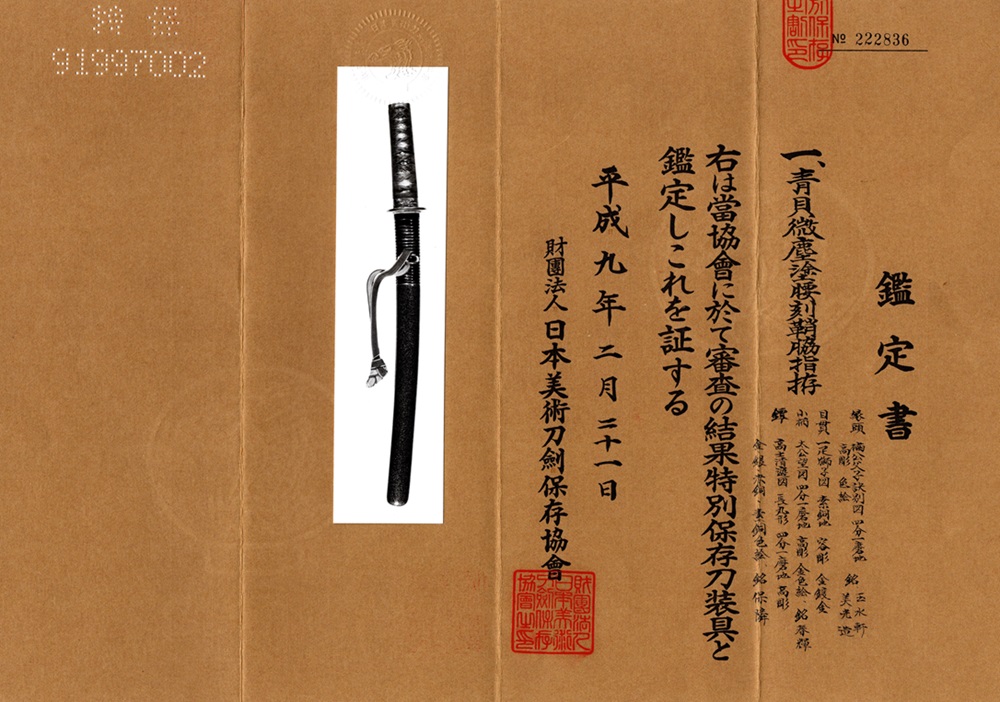 № 222836
鑑定書
一、青貝微塵塗腰刻鞘脇指拵
縁頭 楠公父子訣別図 四分一磨地
高彫 色絵 銘 玉永軒
美光造
目貫 一疋獅子図 素銅地 容彫 金鍍金
小柄 太公望図 四分一磨地 高彫 金色絵 銘 春輝
鐔 高士清遊図 長丸形 四分一磨地 高彫
金・銀・赤銅・素銅色絵 銘 保隣
右は當協會に於て審査の結果特別保存刀装具と
鑑定しこれを証する
平成九年二月二十一日
財團法人 日本美術刀劍保存協會
特保
91997002